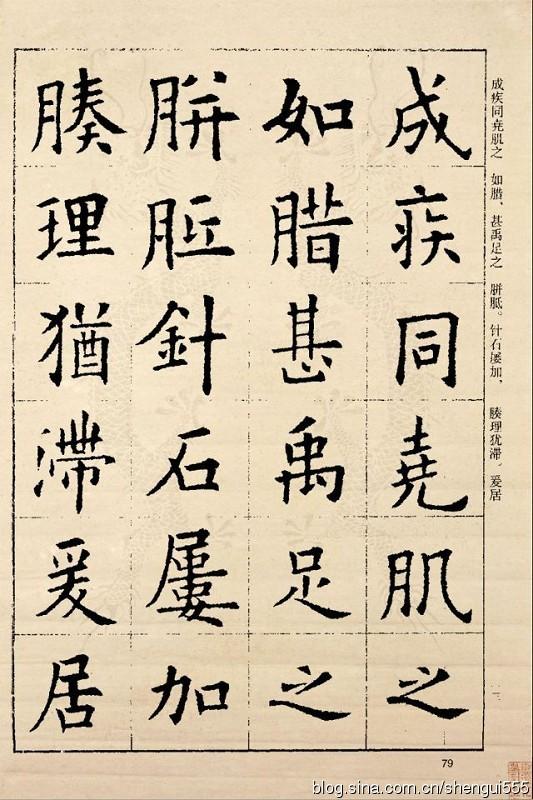 成疾同尧肌之　如腊、甚禹足之　胼胝。针石屡加、　腠理犹滞。爰居
成疾同堯肌之
如腊甚禹足之
胼胝針石屢加
腠理猶滯爰居
79
blog.sina.com.cn/shengui555